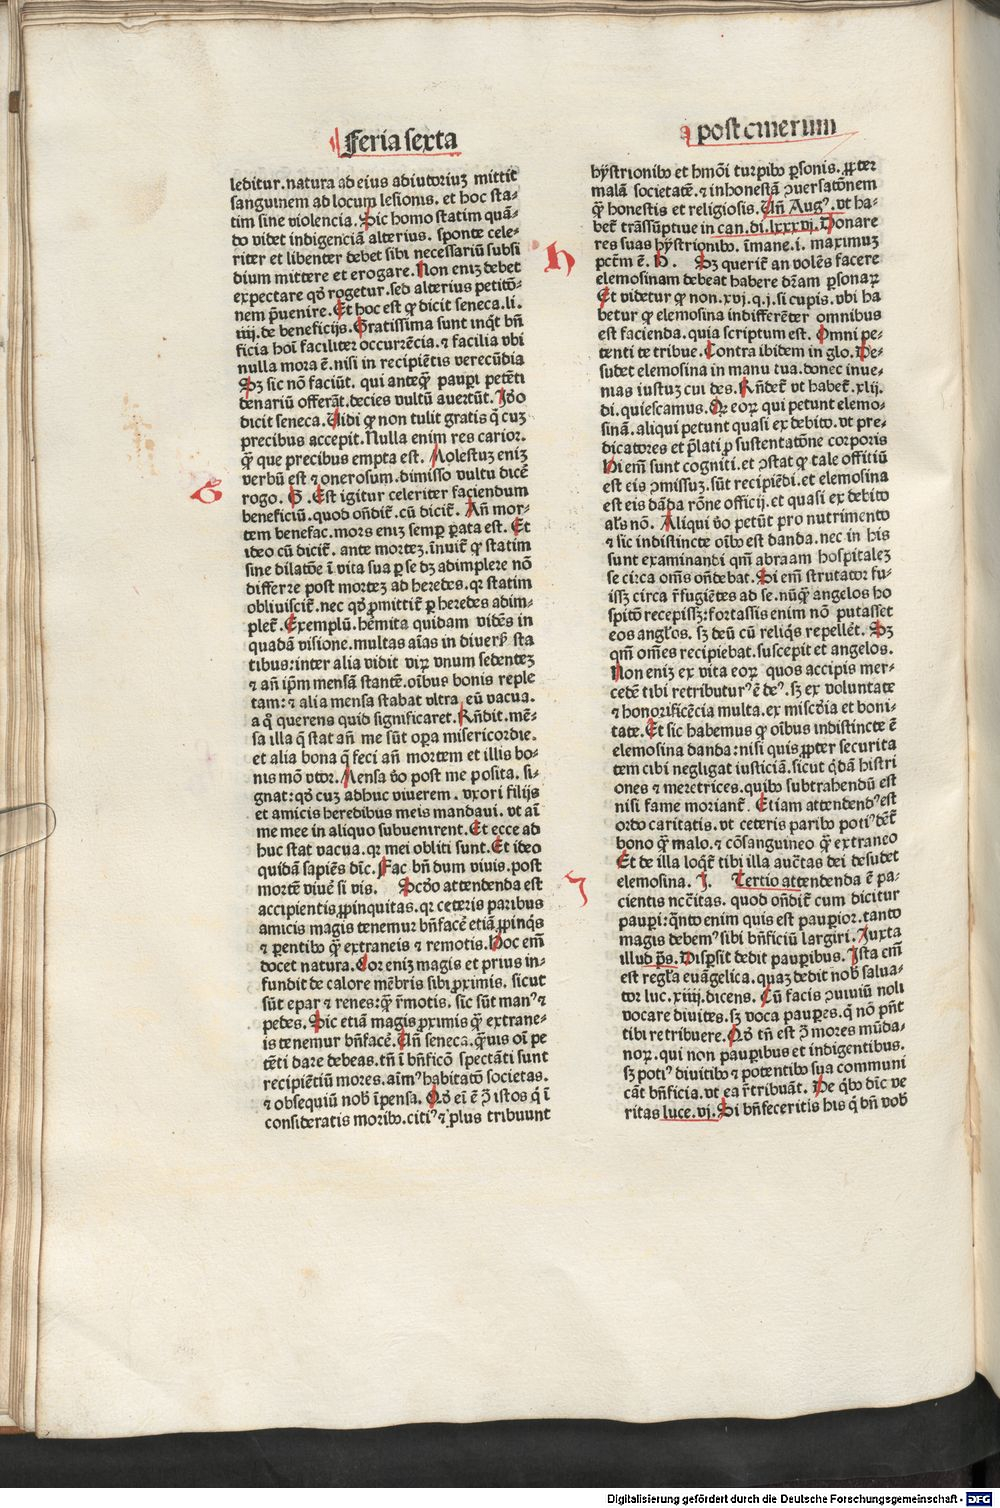 Feria sexta
leditur. natura ad eius adiutoriuʒ mittit
sanguinem ad locum lesionis. et hoc sta-
tim sine violencia. Sic homo statim quā-
do videt indigenciā alterius. sponte cele-
riter et libenter debet sibi necessariū subsi
dium mittere et erogare. Non eniʒ debet
expectare qđ rogetur. sed alterius petitō-
nem p̄uenire. Et hoc est ꝙ dicit seneca. li.
iiij. de beneficijs. Gratissima sunt inq̇t bn̄
ficia hoī faciliter occurrētia. ⁊ facilia vbi
nulla mora ē. nisi in recipiētis verecūdia
Sʒ sic nō faciūt. qui anteqꝫ̄ pauꝑi petēti
denariū offerāt. decies vultū auertūt. Iđo
dicit seneca. Uidi ꝙ non tulit gratis q̇ cuʒ
precibus accepit. Nulla enim res carior.
qꝫ̄ que precibus empta est. Molestuʒ eniʒ
verbū est ⁊ onerosum. dimisso vultu dicē
rogo. G. Est igitur celeriter faciendum
G
beneficiū. quod on̄diꞇ̄. cū dicit̄. An̄ mor-
tem benefac. mors eniʒ semꝑ ꝑata est. Et
ideo cū dicit̄. ante morteʒ. īnuit̄ ꝙ statim
sine dilatōne ī vita sua ꝑ se dʒ adimplere nō
differre post morteʒ ad heredes. qꝛ statim
obliuiscit̄. nec qđ ꝓmittit̄ ꝑ heredes adim-
plet̄. Exemplū. hēmita quidam vidēs in
quadā visione. multas aīas in diuerẜ sta
tibus: inter alia vidit virꝝ vnum sedenteʒ
⁊ an̄ ip̄m mensā stantē. oībus bonis reple
tam: ⁊ alia mensa stabat vltra eū vacua.
a q̊ querens quid significaret. Rn̄dit. mē-
sa illa q̄ stat an̄ me sūt oꝑa misericordie.
et alia bona q̄ feci an̄ mortem et illis bo-
nis mō vtor. Mensa v̊o post me posita. si-
gnat: qđ cuʒ adhuc viuerem. vxori filijs
et amicis heredibus meis mandaui. vt aī
me mee in aliquo subuenirent. Et ecce ad
huc stat vacua. qꝛ mei obliti sunt. Et ideo
quidā sapiēs dīc. Fac bn̄ dum viuis. post
mortē viuē si vis. Scđo attendenda est
accipientis ꝓpinquitas. qꝛ ceteris paribus
amicis magis tenemur bn̄facē etiā ꝓpinq̇s
⁊ ꝑentibꝰ qꝫ̄ extraneis ⁊ remotis. Hoc em̄
docet natura. Cor eniʒ magis et prius in-
fundit de calore mēbris sibi ꝓximis. sicut
sūt epar ⁊ renes: qꝫ̄ r̄motis. sic sūt manꝰ ⁊
pedes. Sic etiā magis ꝓximis qꝫ̄ extrane-
is tenemur bn̄facē. Un̄ seneca. qꝫ̄uis oī pe
tēti dare debeas. tn̄ ī bn̄ficō spectāti sunt
recipiētiū mores. aīmꝰ habitatō societas.
⁊ obsequiū nob̄ īpensa. Qđ eī ē ꝯ̄ istos q̇ ī
consideratis moribꝰ. citiꝰ ⁊ plus tribuunt
post cinerum
hystrionibꝰ et hmōi turpibꝰ ꝑsonis. ꝓpter
malā societatē. ⁊ inhonestā ꝯuersatōnem
qꝫ̄ honestis et religiosis. Un̄ Augꝰ. vt ha-
bet̄ trāssūptiue in can. di. lxxxvj. Donare
res suas hystrionibꝰ. īmane. i. maximuʒ
pctm̄ ē. H. Sʒ querit̄ an volēs facere
h
elemosinam debeat habere dr̄am ꝑsonaꝝ
Et videtur ꝙ non. xvj. q. j. si cupis. vbi ha
betur ꝙ elemosina indifferēter omnibus
est facienda. quia scriptum est. Omni pe-
tenti te tribue. Contra ibidem in glo. De-
sudet elemosina in manu tua. donec inue-
nias iustuʒ cui des. Rn̄det̄ vt habet̄. xlij.
di. quiescamus. Qꝛ eoꝝ qui petunt elemo-
sinā. aliqui petunt quasi ex debito. vt pre-
dicatores et p̄lati ꝓ sustentatōne corporis
Hi em̄ sunt cogniti. et ꝯstat ꝙ tale offitiū
est eis ꝯmissuʒ. sūt recipiēdi. et elemosina
est eis dāda rōne officij. et quasi ex debito
al̓s nō. Aliqui v̊o petūt pro nutrimento
⁊ sic indistincte oībꝰ est danda. nec in his
sunt examinandi qm̄ abraam hospitaleʒ
se circa om̄s on̄debat. Si em̄ strutator fu-
issʒ circa r̄fugiētes ad se. nūqꝫ̄ angelos ho
spitō recepissʒ: fortassis enim nō putasset
eos angl̓os. sʒ deū cū reliq̇s repellet. Sʒ
qm̄ om̄es recipiebat. suscepit et angelos.
Non eniʒ ex vita eoꝝ quos accipis mer-
cedē tibi retributurꝰ ē deꝰ. sʒ ex voluntate
⁊ honorificēcia multa. ex mīscđia et boni-
tate. Et sic habemus ꝙ oībus indistincte ē
elemosina danda: nisi quis ꝓpter securita
tem cibi negligat iusticiā. sicut q̇dā histri
ones ⁊ meretrices. quibꝰ subtrahendū est
nisi fame moriant̄. Etiam attendendꝰ est
ordo caritatis. vt ceteris paribꝰ potiꝰ det̄
bono qꝫ̄ malo. ⁊ cōsanguineo qꝫ̄ extraneo
Et de illa loq̇t̄ tibi illa auc̄tas dei desudet
elemosina. I. Tertio attendenda ē pa-
J
cientis nccītas. quod on̄dit̄ cum dicitur
pauꝑi: q̇nto enim quis est pauꝑior. tanto
magis debemꝰ sibi bn̄ficiū largiri. Iuxta
illud ps̄. Disꝑsit dedit pauꝑibus. Ista em̄
est regl̓a euāgelica. quaʒ dedit nob̄ salua-
tor luc. xiiij. dicens. Cū facis ꝯuiuiū noli
vocare diuites. sʒ voca pauꝑes. q̇ nō pn̄t
tibi retribuere. Qđ tn̄ est ꝯ̄ mores mūda-
noꝝ. qui non pauꝑibus et indigentibus.
sʒ potiꝰ diuitibꝰ ⁊ potentibꝰ sua communi
cāt bn̄ficia. vt ea r̄tribuāt. De q̇bꝰ dīc ve
ritas luce. vj. Si bn̄feceritis his q̇ bn̄ vob̄
Digitalisierung gefördert durch die Deutsche Forschungsgemeinschaft - DFG